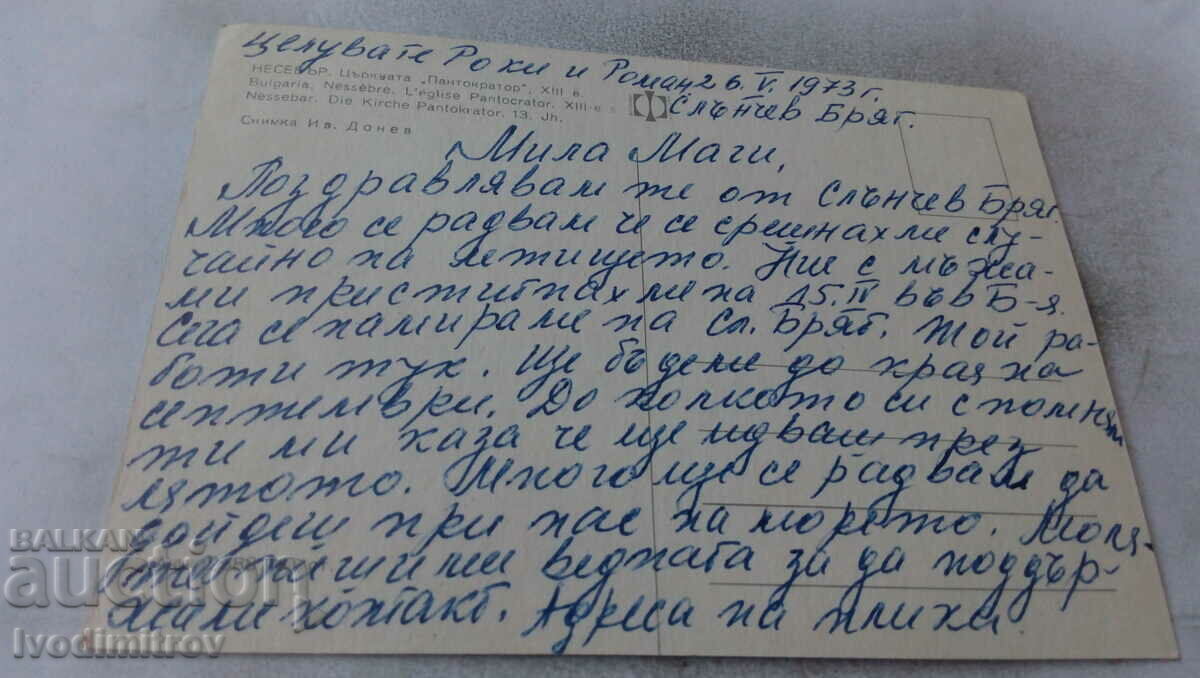 целувате Роки и Роман 26.V.1973 г.
НЕСЕБЪР. Църквата „Пантократор", XIII в.
Bulgaria, Nessèbre. L'église Pantocrator. XIII-e s.
Nessebar. Die Kirche Pantokrator. 13. Jh.
Слънчев Бряг.
Снимка Ив. Донев
Мила Маги,
Поздравлявам те от Слънчев Бряг.
Много се радвам че се срещнахме слу-
чайно на летището. Ние с мъжа
ми пристигнахме на 15.IV във Б-я.
Сега се намираме на Сл. Бряг. Той ра-
боти тук. Ще бъдем до края на
септември. До колкото си спомням
ти ми каза че ще идваш през
лятото. Много ще се радвам да
дойдеш при нас на морето. Моля
те пиши ми веднага за да поддър-
жаме контакт. Адреса на плика.
BALKAN
auction
Ivodimitrov